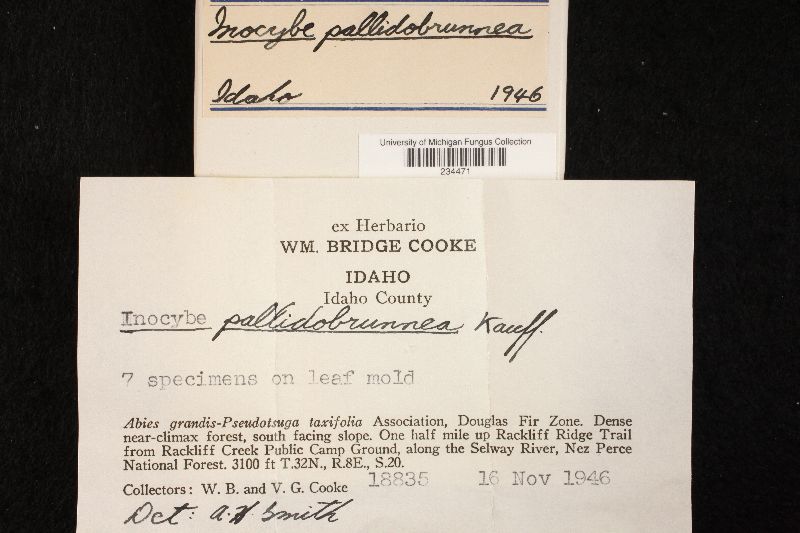 Inocybe pallidobrunnea
Idaho 1946
University of Michigan Fungus Collection
234471
ex Herbario
WM. BRIDGE COOKE
IDAHO
Idaho County
Inocybe pallidobrunnea Kauff.
7 specimens on leaf mold
Abies grandis-Pseudotsuga taxifolia Association, Douglas Fir Zone. Dense
near-climax forest, south facing slope. One half mile up Rackliff Ridge Trail
from Rackliff Creek Public Camp Ground, along the Selway River, Nez Perce
National Forest. 3100 ft T.32N., R.8E., S.20.
Collectors: W. B. and V. G. Cooke 18835 16 Nov 1946
Det: A. H. Smith